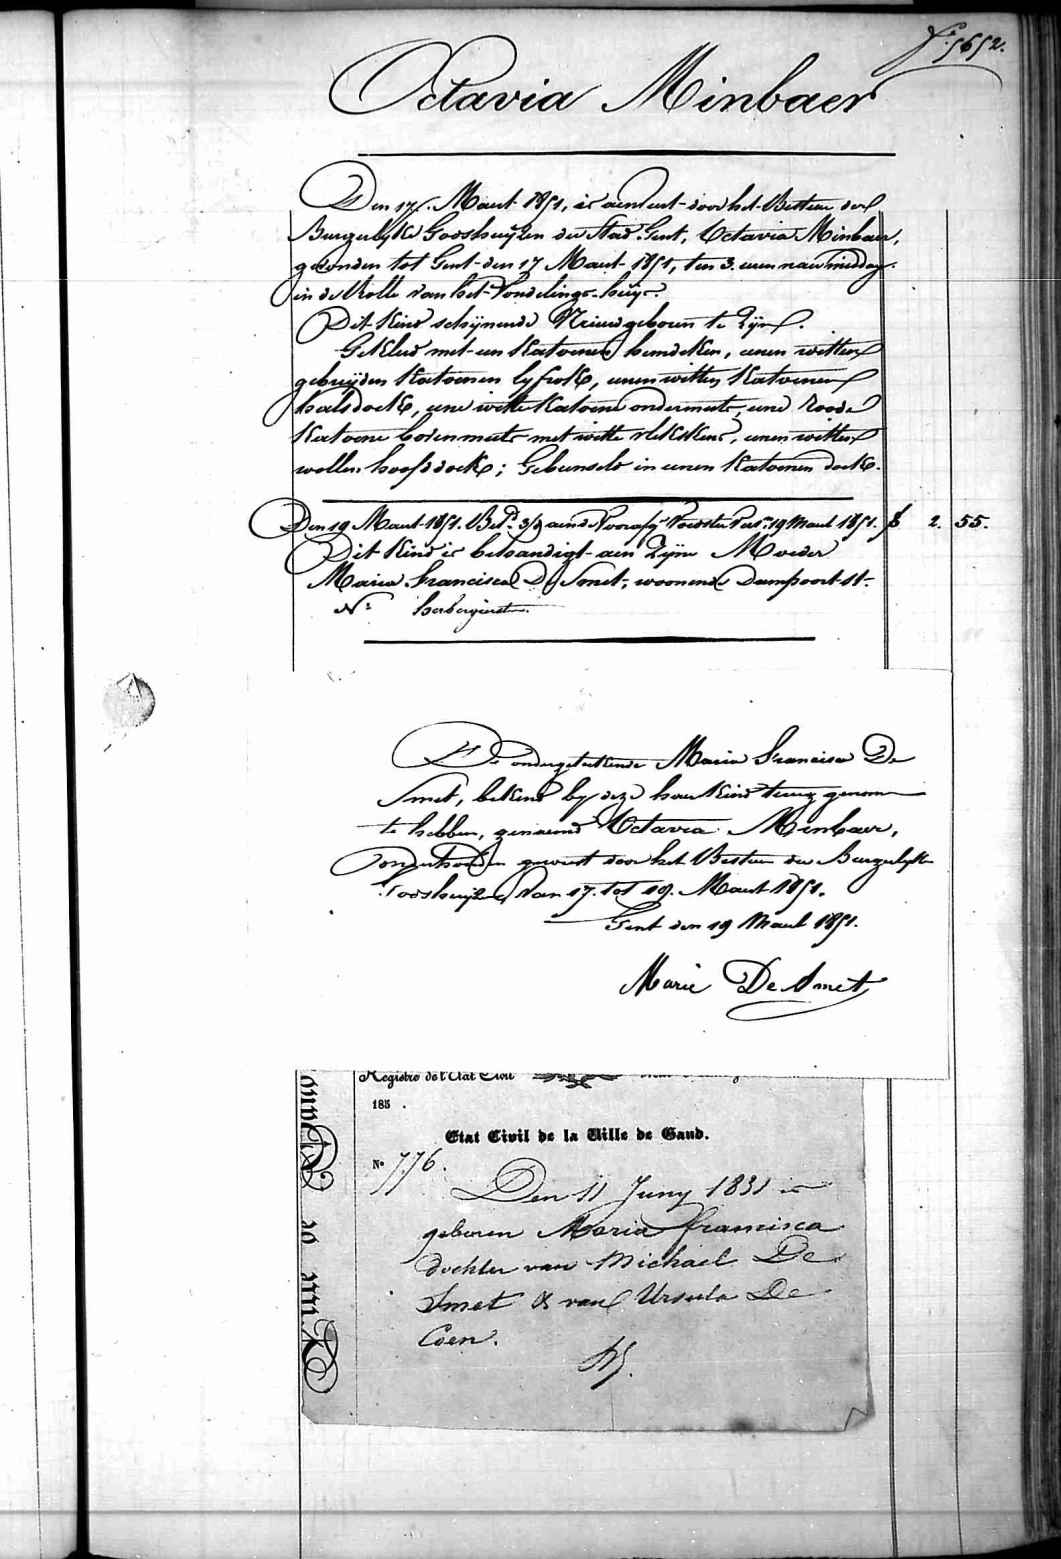 f° 5652.
Octavia Minbaer
Den 17. Maart 1851, is aenveert door het Bestier der
Burgerlyke Godshuÿzen der Stad Gent, Octavia Minbaer,
gevonden tot Gent den 17 Maart 1851, ten 3. uren naermiddag
in de Rolle van het Vondelings-huÿs.
Dit Kind schÿnende Nieuwgeboren te Zÿn.
Gekleed met een Katoenen hemdeken, eenen witten
gebreÿden Katoenen lyfrok, eenen witten Katoenen
halsdoek, eene witte Katoene ondermuts, eene Roode
Katoene bovenmuts met witte vlekskens, eenen witten
wollen hoofddoek; Gebunseld in eenen Katoenen doek.
Den 19 Maart 1851. 19 Maart 1851. f 2. 55.
Dit Kind is behandigt aen Zÿne Moeder
Maria Francisca De Smet, woonende Dampoort-st-
N° herbergierster.
De ondergeteekende Maria Francisca De
Smet, bekend by deze haer Kind terug genomen
te hebben, genaemd Octavia Minbaer,
onderhouden geweest door het Bestier der Burgerlyke
Godshuÿzen, van 17. tot 19. Maart 1851.
Gent den 19 Maart 1851.
Marie De Smet
Registre de l'Etat Civil
185 .
Etat Civil de la Ville de Gand.
N° 776.
Den 11 Juny 1831 is
geboren Maria francisca
dochter van Michael De
Smet & van Ursula De
Coen.